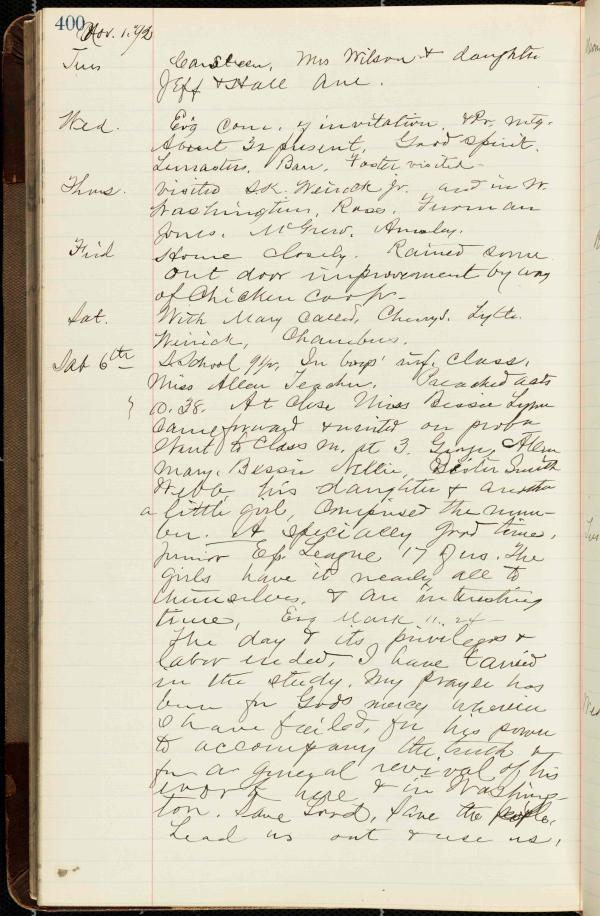 400 Nov. 1. 92
Tues Mrs Wilson & daughter
Jeff & Hall Ave.
Wed. Evg Com. of invitation & Pr. mtg.
About 32 present, Good spirit.
Lemasters, Barr, Foster visited
Thurs. Visited S.K. Weirick jr. and in W.
Washington, Ross, Furman
Jones, McGrew, Ansley.
Frid Home closely. Rained some
Out door improvement by way
of Chicken coop.
Sat. With Mary called, Cherrys. Lytle
Weirick, Chambers.
Sab 6th S. School 9½. In boys' inf. class,
Miss Allen Teacher. Preached acts
10. 38. At close Miss Bessie
Came forward & united on proba
Went to Class m. at 3. George, Allen
Mary, Bessie Nellie, Sister Smith
Webb, his daughter & another
a little girl, Comprised the num-
ber. A specially good time.
Junior Ep. League 17 of us. The
girls have it nearly all to
themselves, & an interesting
time, Evg Mark 11. 24
The day & its privileges &
labor ended, I have tarried
in the study. My prayer has
been for Gods mercy wherein
I have failed, for his power
to accompany the truth &
for a general revival of his
work here & in Washing-
ton. Save Lord, save the people,
Lead us out & use us,